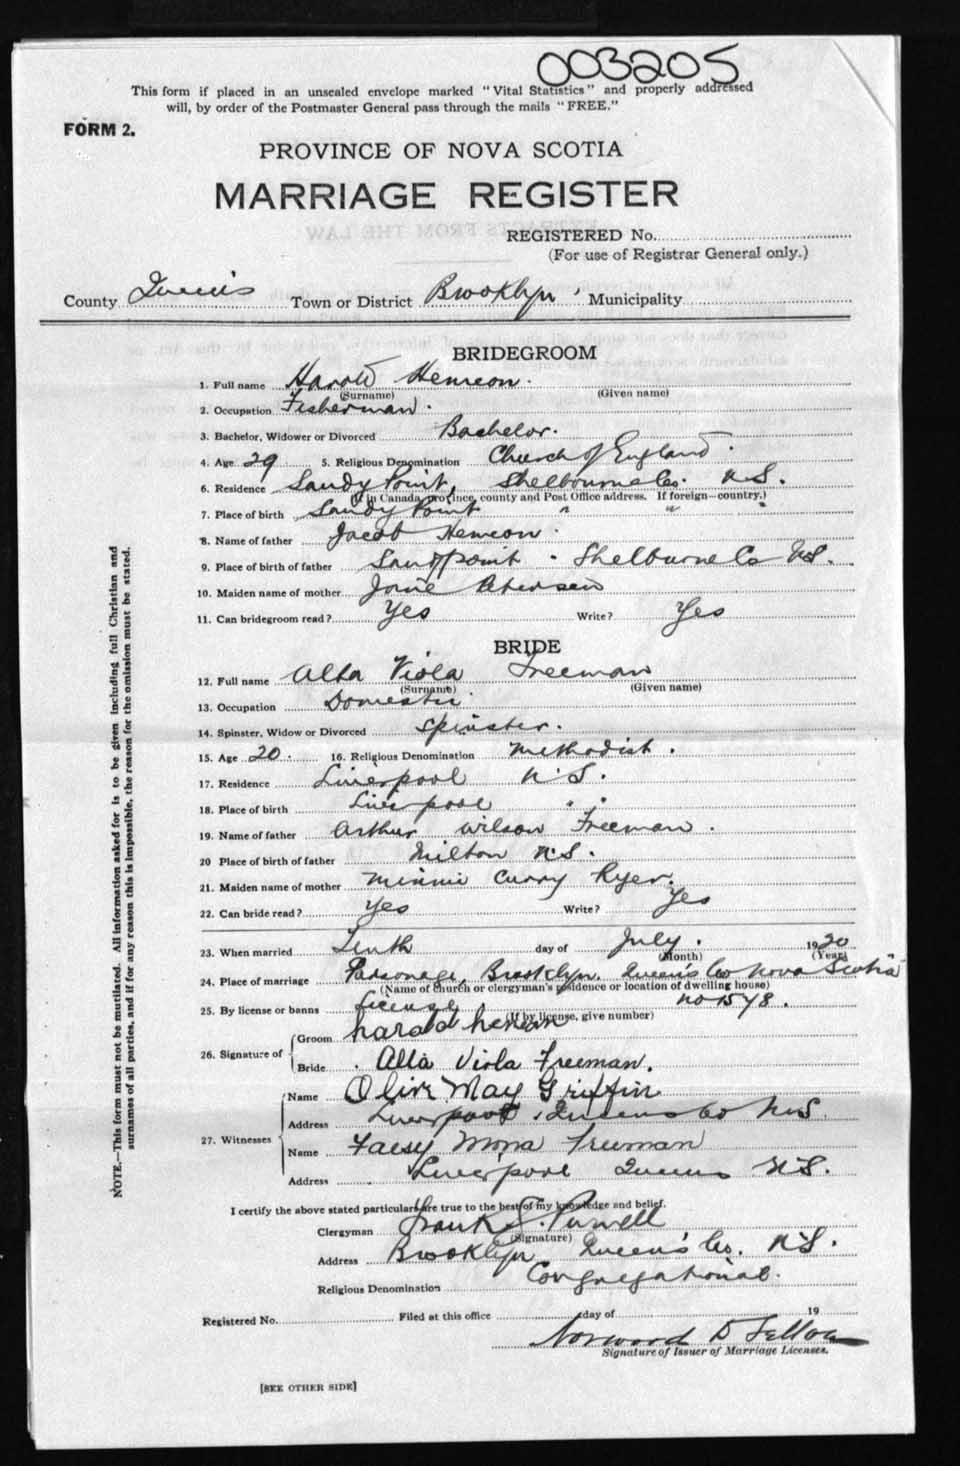 003205
This form if placed in an unsealed envelope marked "Vital Statistics" and properly addressed
will, by order of the Postmaster General pass through the mails "FREE."
FORM 2.
PROVINCE OF NOVA SCOTIA
MARRIAGE REGISTER
REGISTERED No.
(For use of Registrar General only.)
County Queen's Town or District Brooklyn, Municipality
BRIDEGROOM
1. Full name Harold Hemeon.
(Surname) (Given name)
2. Occupation Fisherman.
3. Bachelor, Widower or Divorced Bachelor.
4. Age 29 5. Religious Denomination Church of England.
6. Residence Sandy Point, Shelburne Co. N.S.
(If in Canada, province, county and Post Office address. If foreign—country.)
7. Place of birth Sandy Point " " "
8. Name of father Jacob Hemeon.
9. Place of birth of father Sandy point. Shelburne Co N.S.
10. Maiden name of mother Jane
11. Can bridegroom read? Yes Write? Yes
BRIDE
12. Full name Alta Viola Freeman
(Surname) (Given name)
13. Occupation Domestic.
14. Spinster, Widow or Divorced Spinster.
15. Age 20. 16. Religious Denomination Methodist.
17. Residence Liverpool N.S.
18. Place of birth Liverpool " "
19. Name of father Arthur Wilson Freeman.
20 Place of birth of father Milton N.S.
21. Maiden name of mother Minnie Curry Ryer.
22. Can bride read? Yes Write? Yes
23. When married Tenth day of July. 1920
(Month) (Year)
24. Place of marriage Parsonage, Brooklyn. Queen's Co Nova Scotia
(Name of church or clergyman's residence or location of dwelling house)
25. By license or banns License no 1578.
(If by license, give number)
26. Signature of Groom harald hemeon
Bride Alta Viola Freeman.
27. Witnesses Name Olive May Griffin
Address Liverpool, Queens Co N.S.
Name Mona Freeman
Address Liverpool Queens N.S.
I certify the above stated particulars are true to the best of my knowledge and belief.
Clergyman Frank S. Purnell
(Signature)
Address Brooklyn, Queen's Co. N.S.
Religious Denomination Congregational.
Registered No. Filed at this office day of 19
Norwood D
Signature of Issuer of Marriage Licenses.
[SEE OTHER SIDE]
NOTE.—This form must not be mutilated. All information asked for is to be given including full Christian and
surnames of all parties, and if for any reason this is impossible, the reason for the omission must be stated.